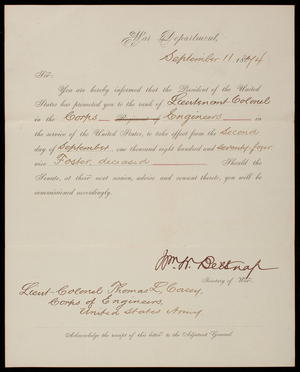 War Department,
September 11 1874
Sir:
You are hereby informed that the President of the United
States has promoted you to the rank of Lieutenant Colonel
in the Corps Regiment of Engineers
in the service of the United States, to take effect from the Second
day of September, one thousand eight hundred and seventy four
vice Foster, deceased Should the
Senate, at their next session, advise and consent thereto, you will be
commissioned accordingly.
Wm. W. Belknap
Secretary of War.
Lieut-Colonel Thomas L. Casey,
Corps of Engineers,
United States Army
Acknowledge the receipt of this letter to the Adjutant General.